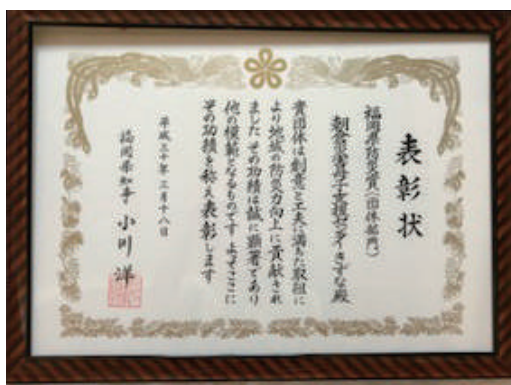 表彰状
福岡県防災賞(団体部門)
朝倉災害母子支援センターきずな殿
貴団体は創意と工夫に満ちた取組に
より地域の防災力向上に貢献され
ました その功績は誠に顕著であり
他の模範となるものです よってここに
その功績を称え表彰します
平成三十年三月十八日
福岡県知事 小川洋